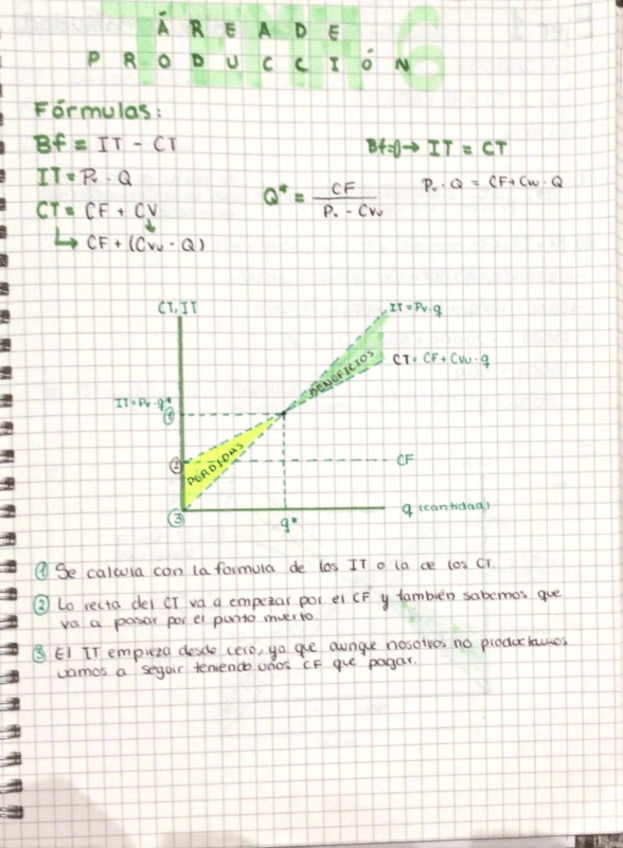 TEMA 6
ÁREA DE
PRODUCCIÓN
Fórmulas:
Bf = IT - CT
Bf=0 → IT = CT
IT = Pv · Q
Q* = CF / Pv - Cvu
Pv · Q = CF + Cvu · Q
CT = CF + CV
↳ CF + (Cvu · Q)
CT, IT
IT = Pv · q
BENEFICIOS
CT = CF + Cvu · q
IT = Pv · q*
①
②
PÉRDIDAS
CF
③
q*
q (cantidad)
① Se calcula con la formula de los IT o la de los CT.
② La recta del CT va a empezar por el CF y también sabemos que
va a pasar por el punto muerto.
③ El IT empieza desde cero, ya que aunque nosotros no produzcamos
vamos a seguir teniendo unos CF que pagar.